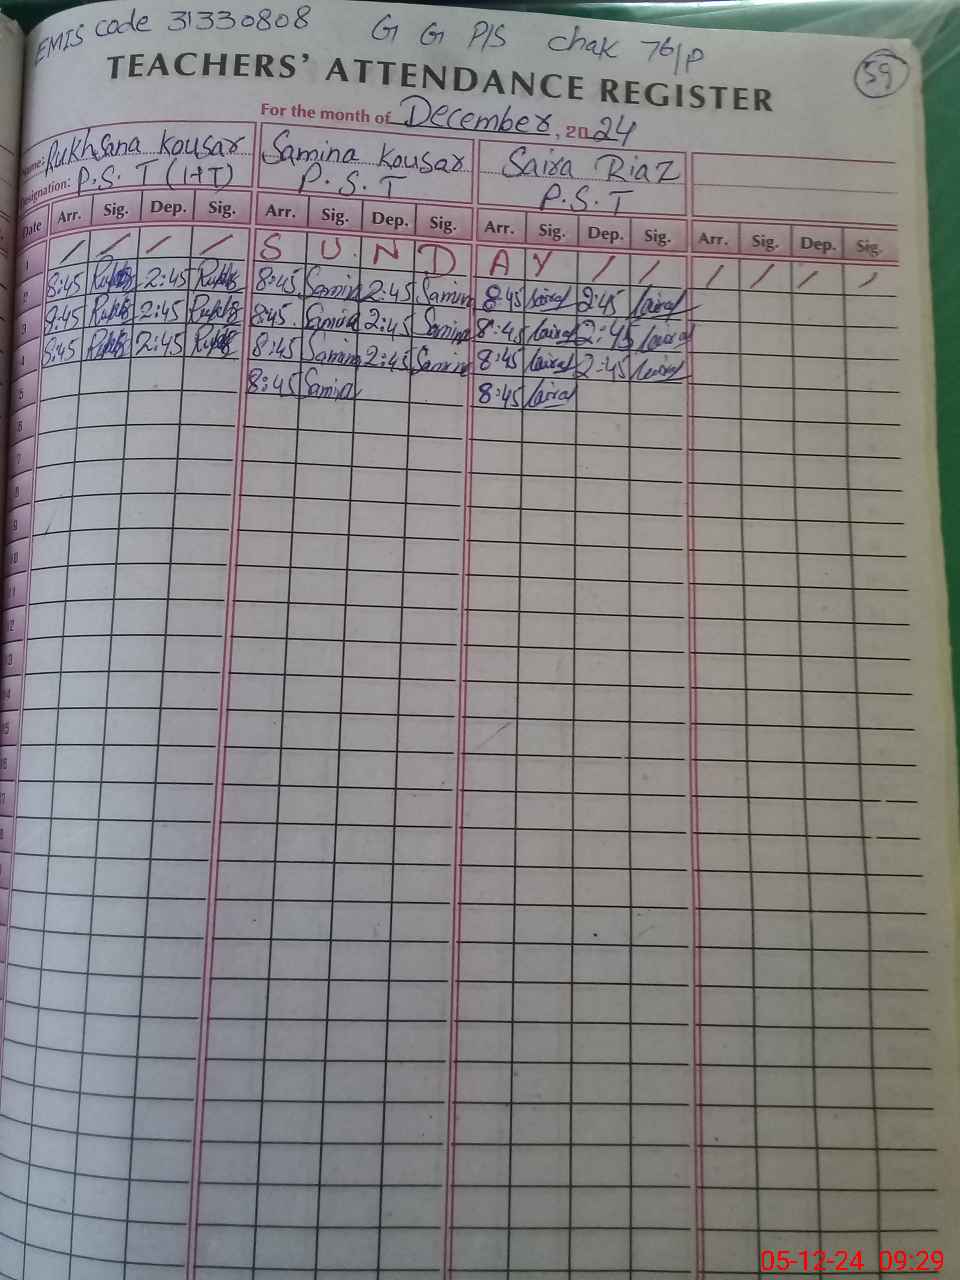 EMIS code 31330808 G G P/S chak 76/P
59
TEACHERS' ATTENDANCE REGISTER
For the month of December, 2024
Name: Rukhsana Kousar Samina Kousar Saira Riaz
Designation: P.S.T (HT) P.S.T P.S.T
Date Arr. Sig. Dep. Sig. Arr. Sig. Dep. Sig. Arr. Sig. Dep. Sig. Arr. Sig. Dep. Sig.
1 / / / / S U N D A Y / / / / / /
2 8:45 2:45 8:45 Samina 2:45 Samina 8:45 Saira 2:45 Saira
3 8:45 2:45 8:45 Samina 2:45 Samina 8:45 Saira 2:45 Saira
4 8:45 2:45 8:45 Samina 2:45 Samina 8:45 Saira 2:45 Saira
5 8:45 Samina 8:45 Saira
6
7
8
9
10
11
12
13
14
15
16
05-12-24 09:29